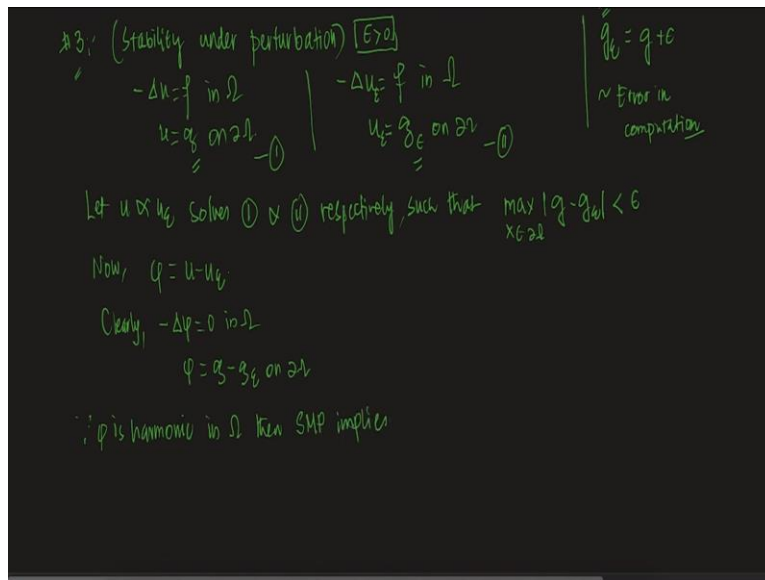 #3: (Stability under perturbation) ε>0
-Δu=f in Ω
u=g on ∂Ω -Ⓘ
-Δu_ε=f in Ω
u_ε=g_ε on ∂Ω -Ⓘⓘ
g_ε = g+ε
~ Error in
computation
Let u & u_ε solves Ⓘ & Ⓘⓘ respectively, such that max |g-g_ε| < ε
x∈∂Ω
Now, φ = u-u_ε
Clearly, -Δφ=0 in Ω
φ = g-g_ε on ∂Ω
∵ φ is harmonic in Ω then SMP implies